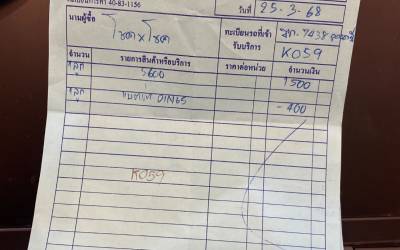 40-83-1156
วันที่ 25-3-68
นามผู้ซื้อ โชคนำโชค ทะเบียนรถที่เข้ารับบริการ 7438
K059
จำนวน รายการสินค้าหรือบริการ ราคาต่อหน่วย จำนวนเงิน
1 ลูก 5600 1500
1 ลูก แบตเก่า DIN65 -400
K059